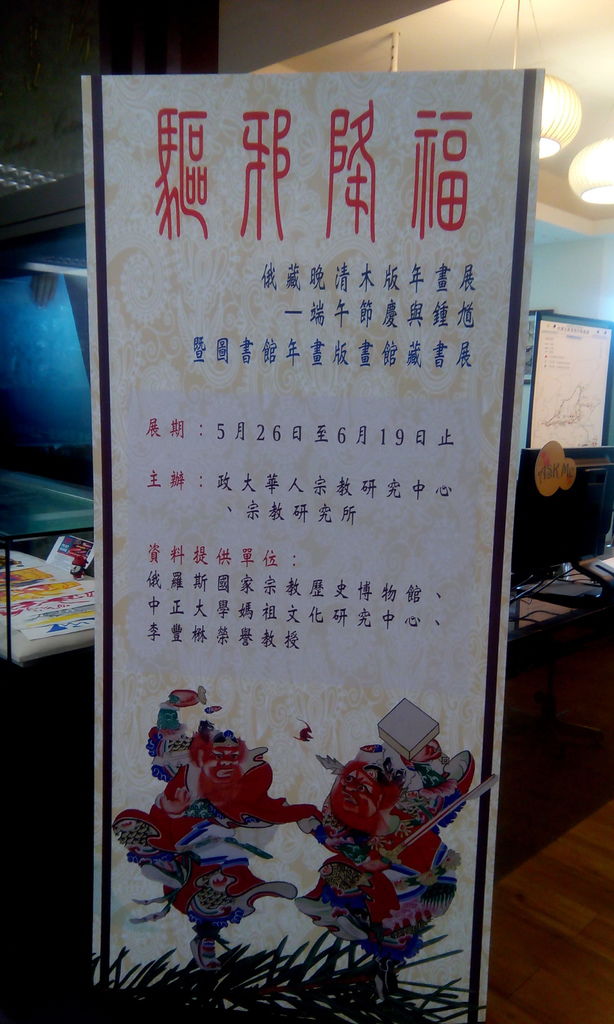 驅邪降福
俄藏晚清木版年畫展
—端午節慶與鍾馗
暨圖書館年畫版畫館藏書展
展期：5月26日至6月19日止
主辦：政大華人宗教研究中心
、宗教研究所
資料提供單位：
俄羅斯國家宗教歷史博物館、
中正大學媽祖文化研究中心、
李豐楙榮譽教授
ASK ME